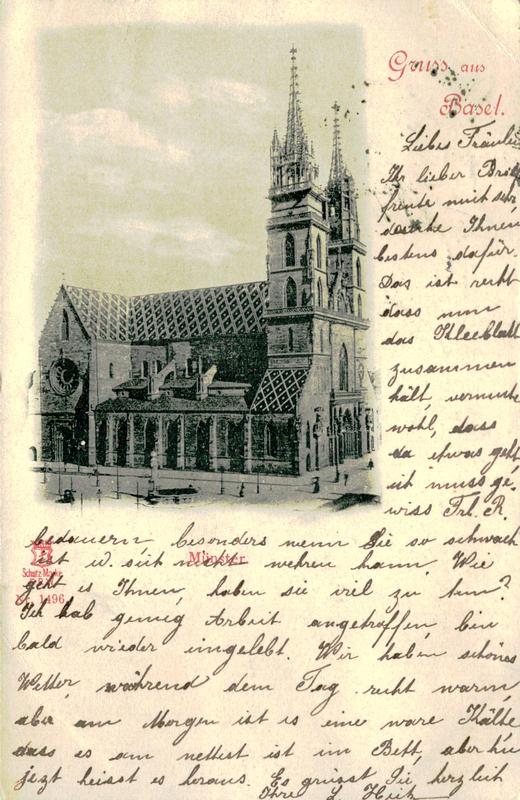 Gruss aus
Basel.
Liebes Fräulein
Ihr lieber Brief
freute mich sehr,
danke Ihnen
bestens dafür.
Das ist recht
dass nun
das Kleeblatt
zusammen
hält, vermute
wohl, dass
da etwas geht
ich muss ge-
wiss Frl. R.
bedauern besonders wenn Sie so schwach
ist u. sich nicht wehren kann. Wie
geht es Ihnen, haben sie viel zu tun?
Ich hab genug Arbeit angetroffen, bin
bald wieder eingelebt. Wir haben schönes
Wetter, während dem Tag recht warm,
aber am Morgen ist es eine ware Kälte,
dass es am nettest ist im Bett, aber
jezt heisst es heraus. Es grüsst Sie herzlich
Ihre L
Münster
Schutz-Marke
Nr. 1496